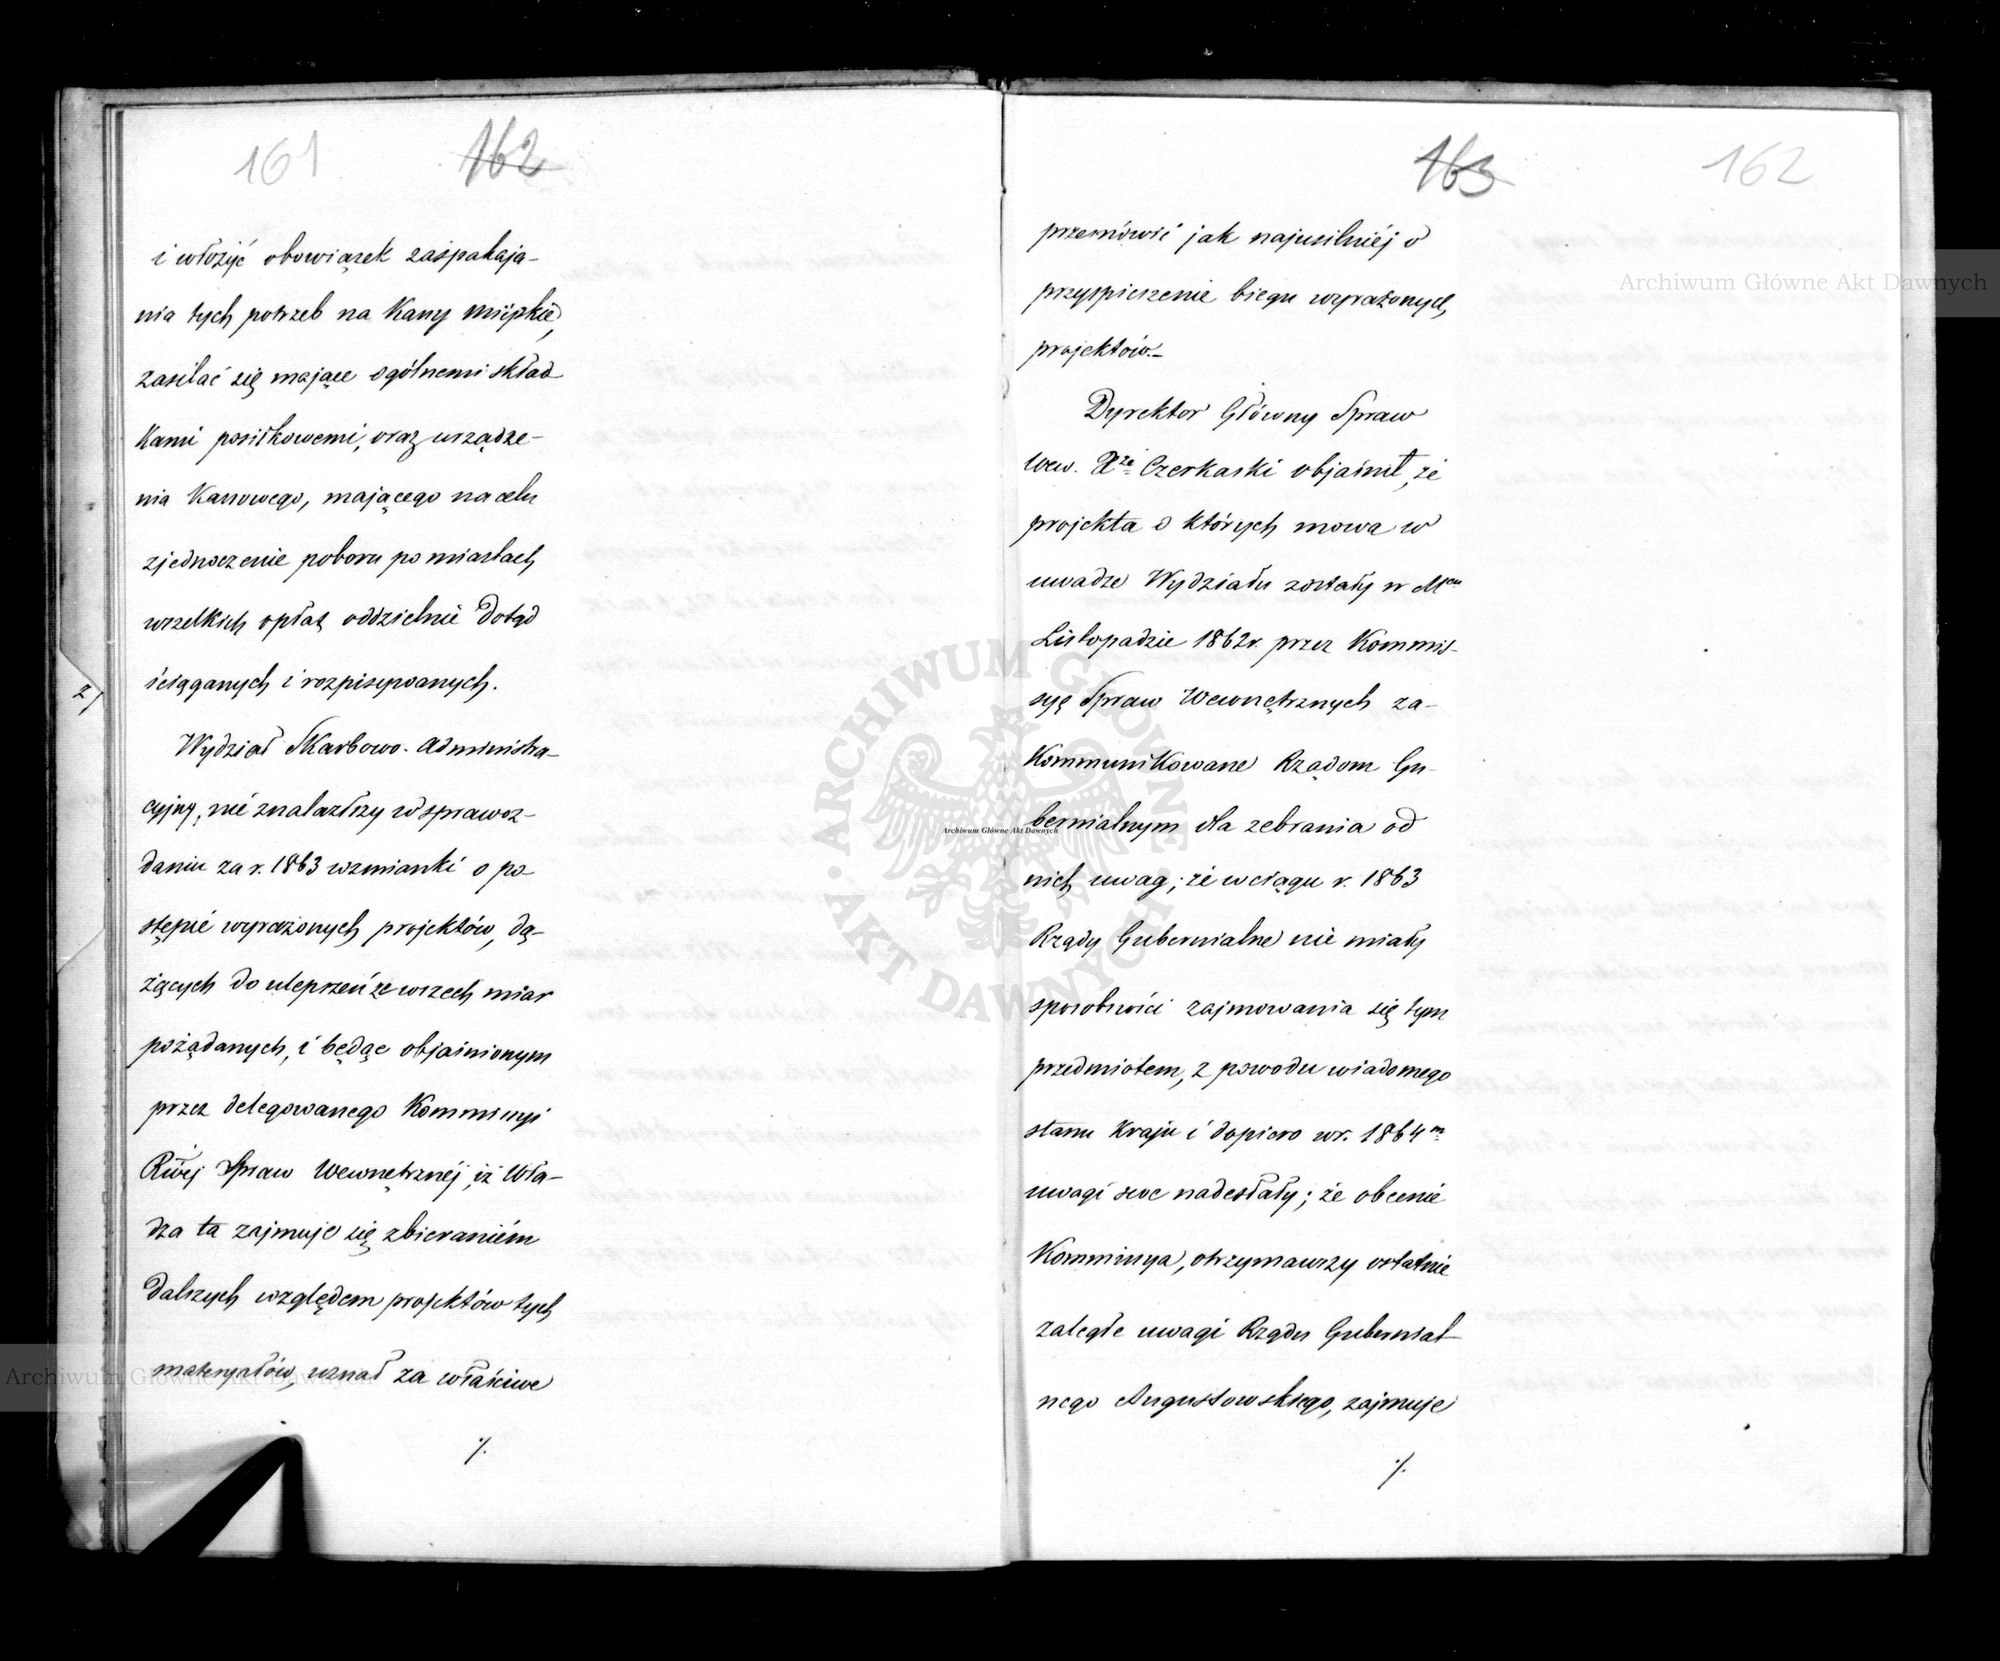 161 162
i włożyć obowiązek zaspakaja-
nia tych potrzeb na Kassy Miejskie,
zasilać się mające ogólnemi skład
kami posiłkowemi, oraz urządze-
nia Kassowego, mającego na celu
zjednoczenie poboru po miastach
wszelkich opłat oddzielnie dotąd
ściąganych i rozpisywanych.
Wydział Skarbowo-Administra-
cyjny, nie znalazłszy w sprawoz-
daniu za r. 1863 wzmianki o po
stępie wyrażonych projektów, dą-
żących do ulepszeń ze wszech miar
pożądanych, i będąc objaśnionym
przez delegowanego Kommissyi
Rwéj Spraw Wewnętrznéj, iż Wła-
dza ta zajmuje się zbieraniém
dalszych względem projektów tych
materyałów, uznał za właściwe
·/.
2)
163 162
przemówić jak najusilniéj o
przyspieszenie biegu wyrażonych
projektów.-
Dyrektor Główny Spraw
Wew. Xże Czerkaski objaśnił, że
projekta o których mowa w
uwadze Wydziału zostały w Mcu
Listopadzie 1862 r. przez Kommis-
syę Spraw Wewnętrznych za-
kommunikowane Rządom Gu-
bernialnym dla zebrania od
nich uwag; że w ciągu r. 1863
Rządy Gubernialne nie miały
sposobności zajmowania się tym
przedmiotem, z powodu wiadomego
stanu Kraju i dopiero w r. 1864 m
uwagi swe nadesłały; że obecnie
Kommissya, otrzymawszy ostatnie
zaległe uwagi Rządu Gubernial-
nego Augustowskiego, zajmuje
·/.
Archiwum Główne Akt Dawnych
Archiwum Główne Akt Dawnych
Archiwum Główne Akt Dawnych
ARCHIWUM GŁÓWNE · AKT DAWNYCH ·